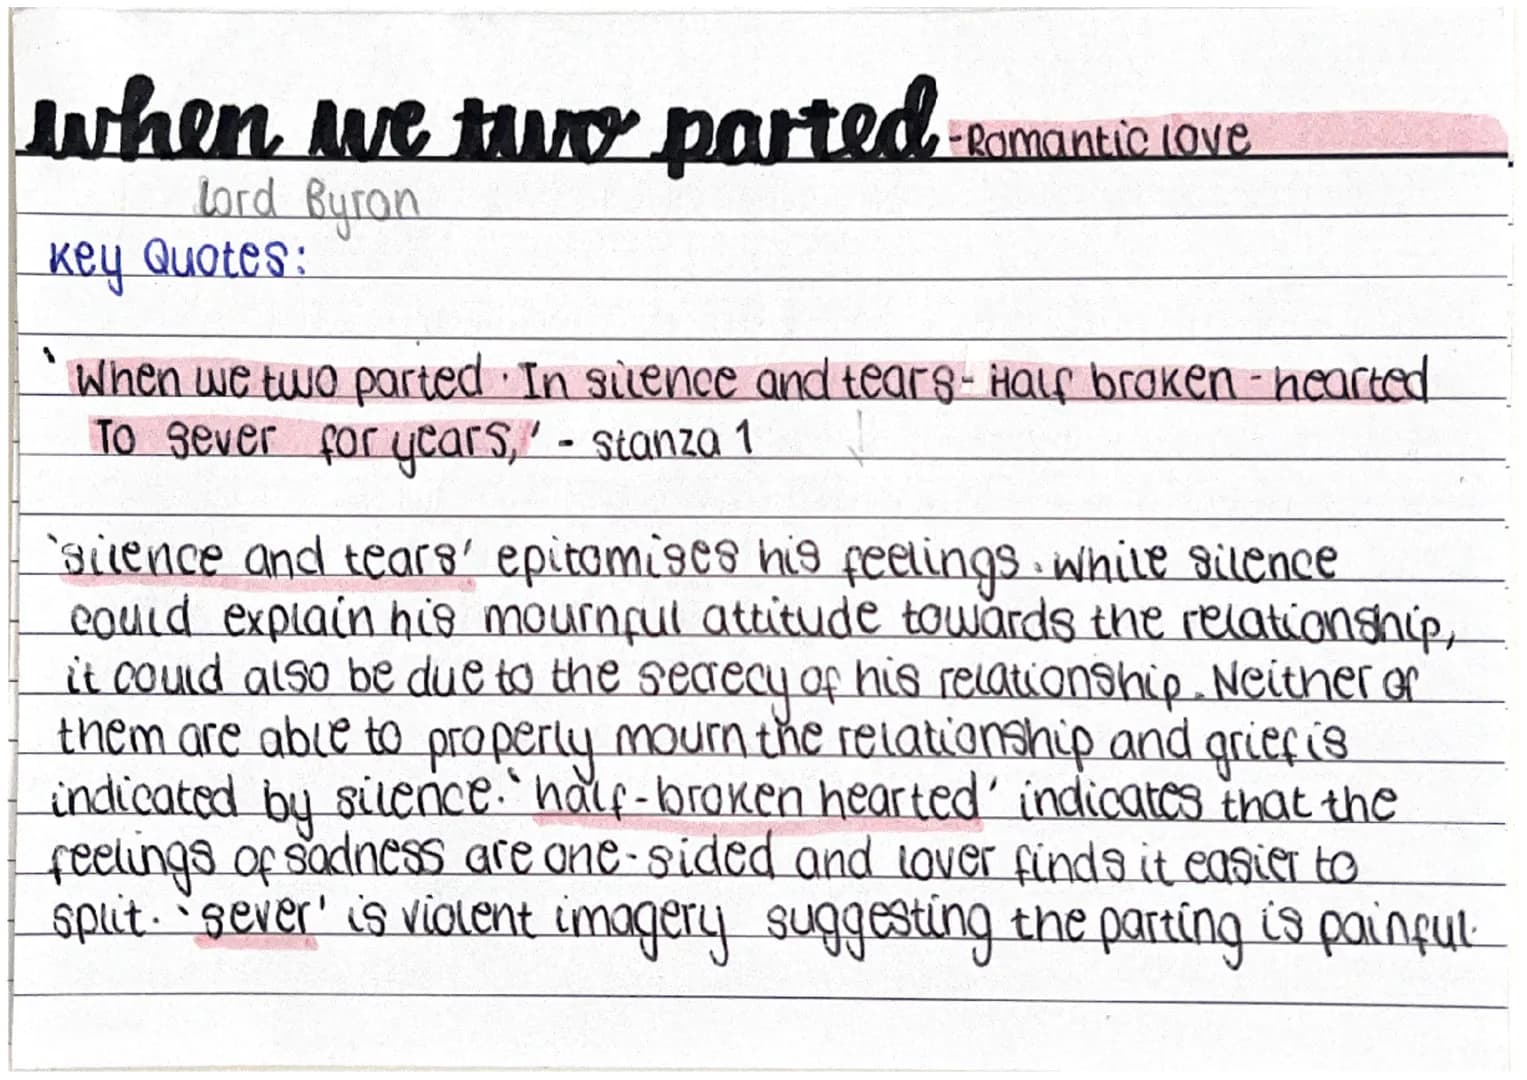 when we two parted - Romantic love
Lord Byron
Key Quotes:
'When we two parted. In silence and tears - Half broken - hearted
To sever for years,' - stanza 1
'silence and tears' epitomises his feelings. While silence
could explain his mournful attitude towards the relationship,
it could also be due to the secrecy of his relationship. Neither of
them are able to properly mourn the relationship and grief is
indicated by silence. 'half-broken hearted' indicates that the
feelings of sadness are one-sided and lover finds it easier to
split. 'sever' is violent imagery suggesting the parting is painful.